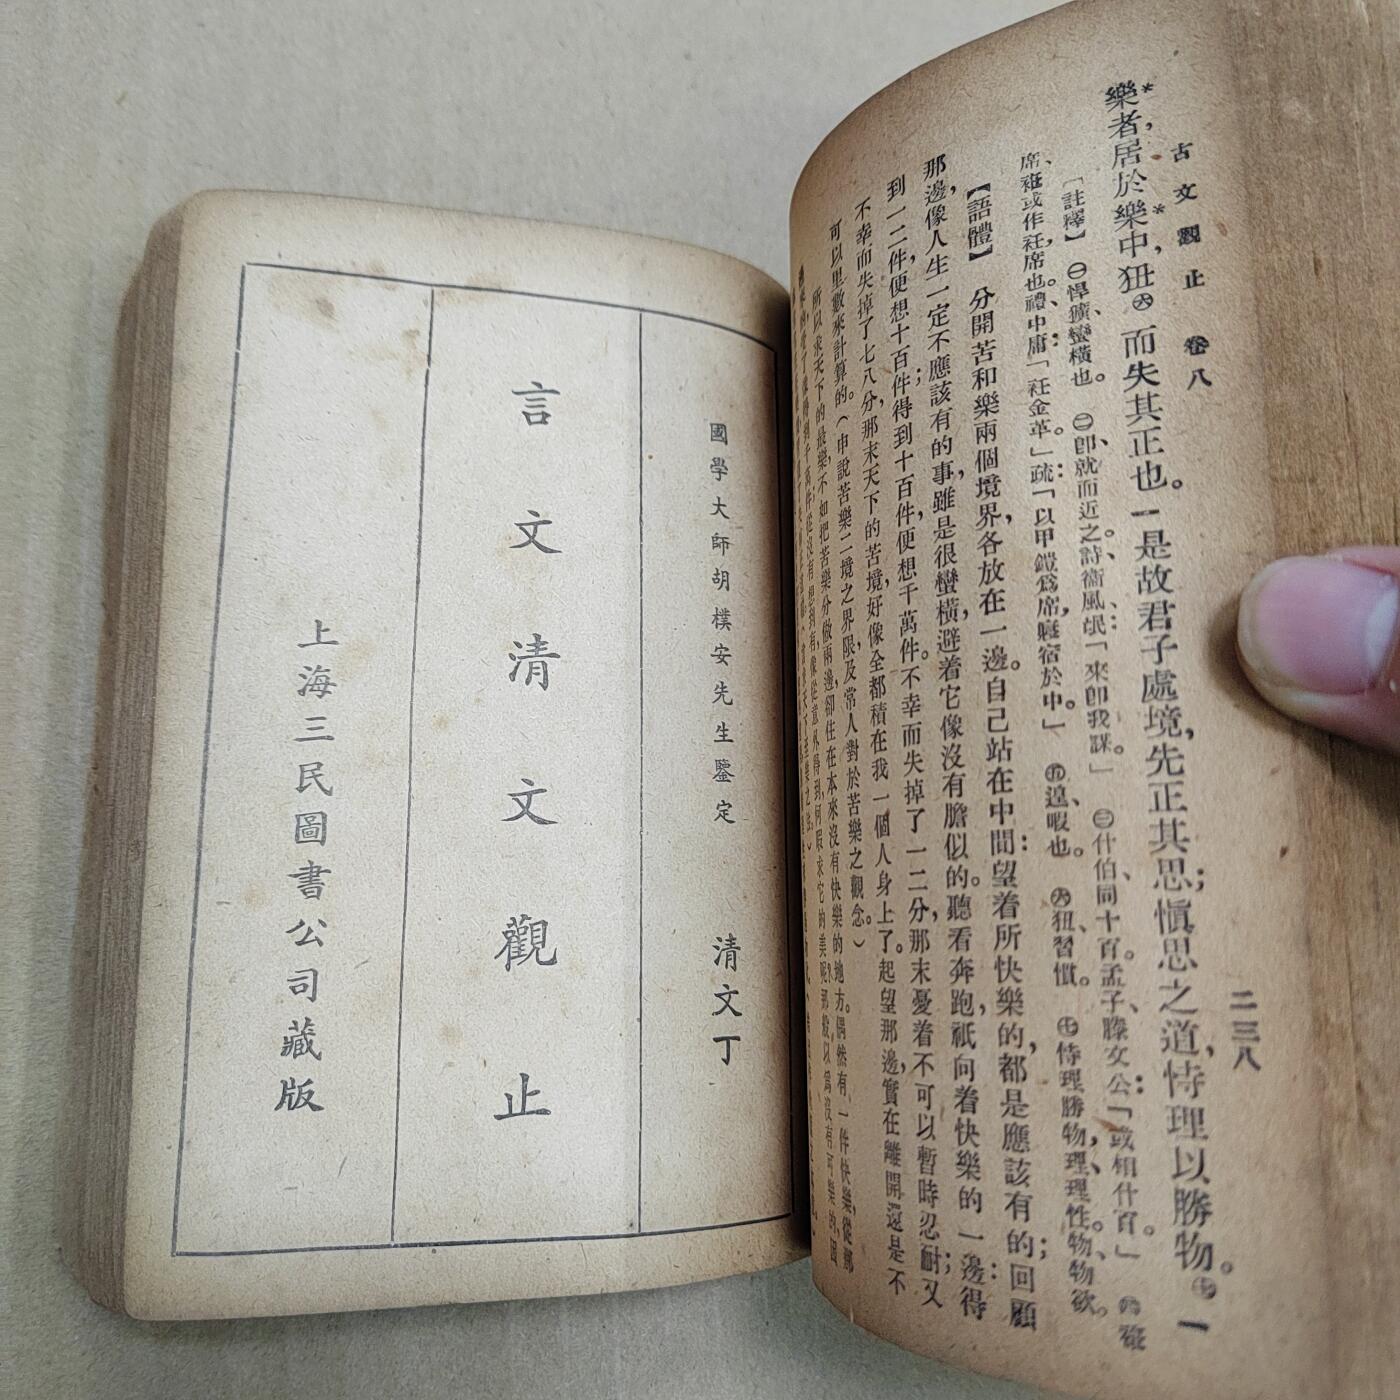 古文觀止 卷八 二三八
樂者居於樂中,狃㊅而失其正也。一是故君子處境,先正其思;慎思之道,恃理以勝物。㊆一
〔註釋】㊀悍獷、蠻橫也。㊁卽、就而近之。詩、衞風、氓:「來卽我謀。」㊂什伯、同十百。孟子、滕文公:「或相什百。」㊃袵
席、袵或作衽,席也。禮、中庸:「衽金革。」疏:「以甲鎧爲席,寢宿於中。」㊄遑、暇也。㊅狃、習慣。㊆恃理勝物,理、理性。物、物欲。
【語體】分開苦和樂兩個境界,各放在一邊。自己站在中間:望着所快樂的,都是應該有的;回顧
那邊,像人生一定不應該有的事,雖是很蠻橫,避着它像沒有膽似的。聽看奔跑,祇向着快樂的一邊:得
到一二件,便想十百件;得到十百件,便想千萬件。不幸而失掉了一二分,那末憂着不可以暫時忍耐;又
不幸而失掉了七八分,那末天下的苦境,好像全都積在我一個人身上了。起望那邊,實在離開還是不
可以里數來計算的。(申說苦樂二境之界限,及常人對於苦樂之觀念。)
所以求天下的最樂,不如把苦樂分做兩邊,卻住在本來沒有快樂的地方。偶然有一件快樂,從那
國學大師胡樸安先生鑒定 清文丁
言文清文觀止
上海三民圖書公司藏版